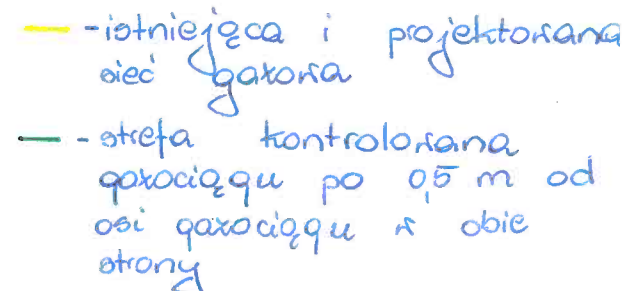 - istniejąca i projektowana
sieć gazowa
- strefa kontrolowana
gazociągu po 0,5 m od
osi gazociągu w obie
strony